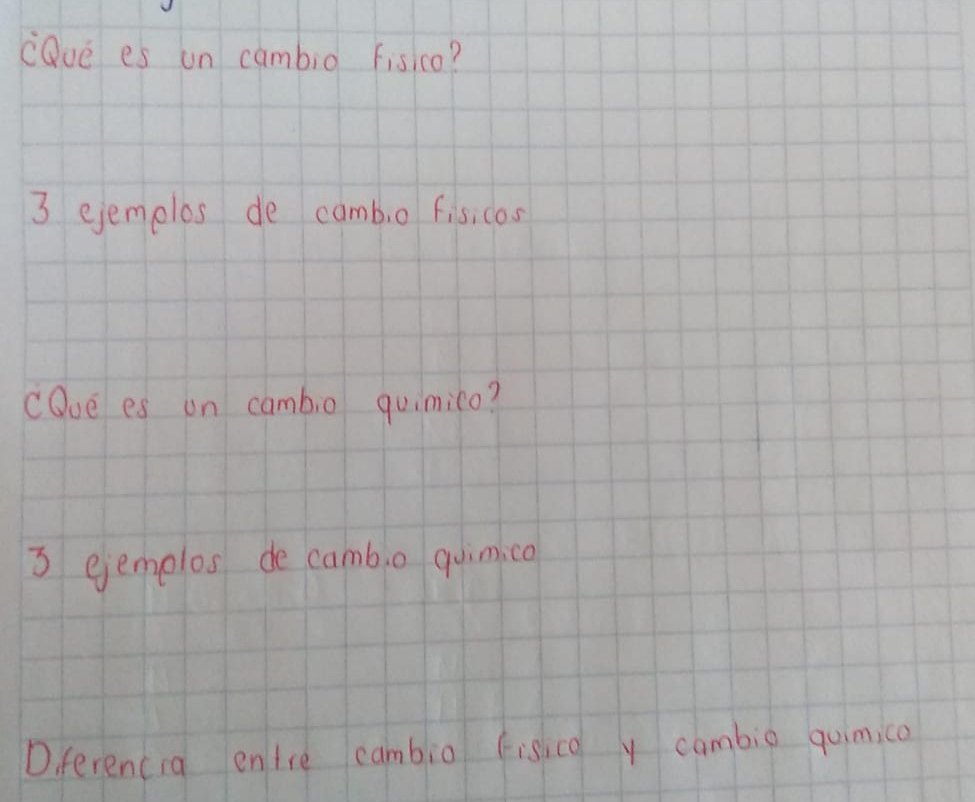 ¿Qué es un cambio fisico?
3 ejemplos de cambio fisicos
¿Qué es un cambio quimico?
3 ejemplos de cambio quimico
Diferencia entre cambio fisico y cambio quimico